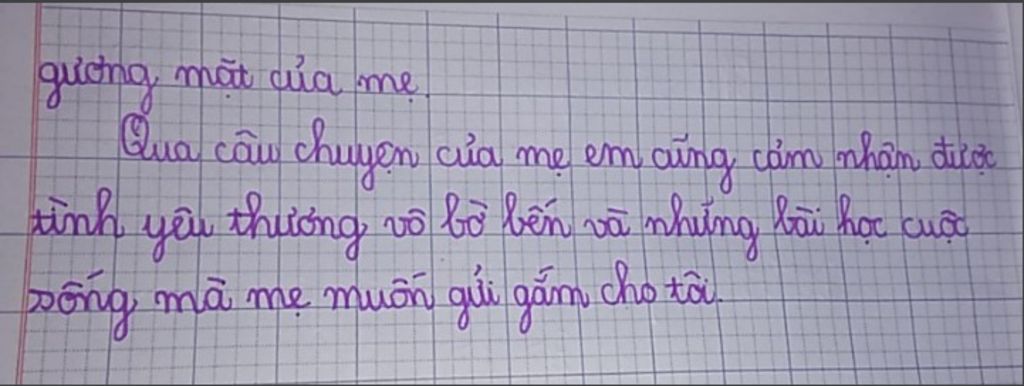 gương mặt của mẹ.
Qua câu chuyện của mẹ em cũng cảm nhận được
tình yêu thương vô bờ bến và những bài học cuộc
sống mà mẹ muốn gửi gắm cho tôi.